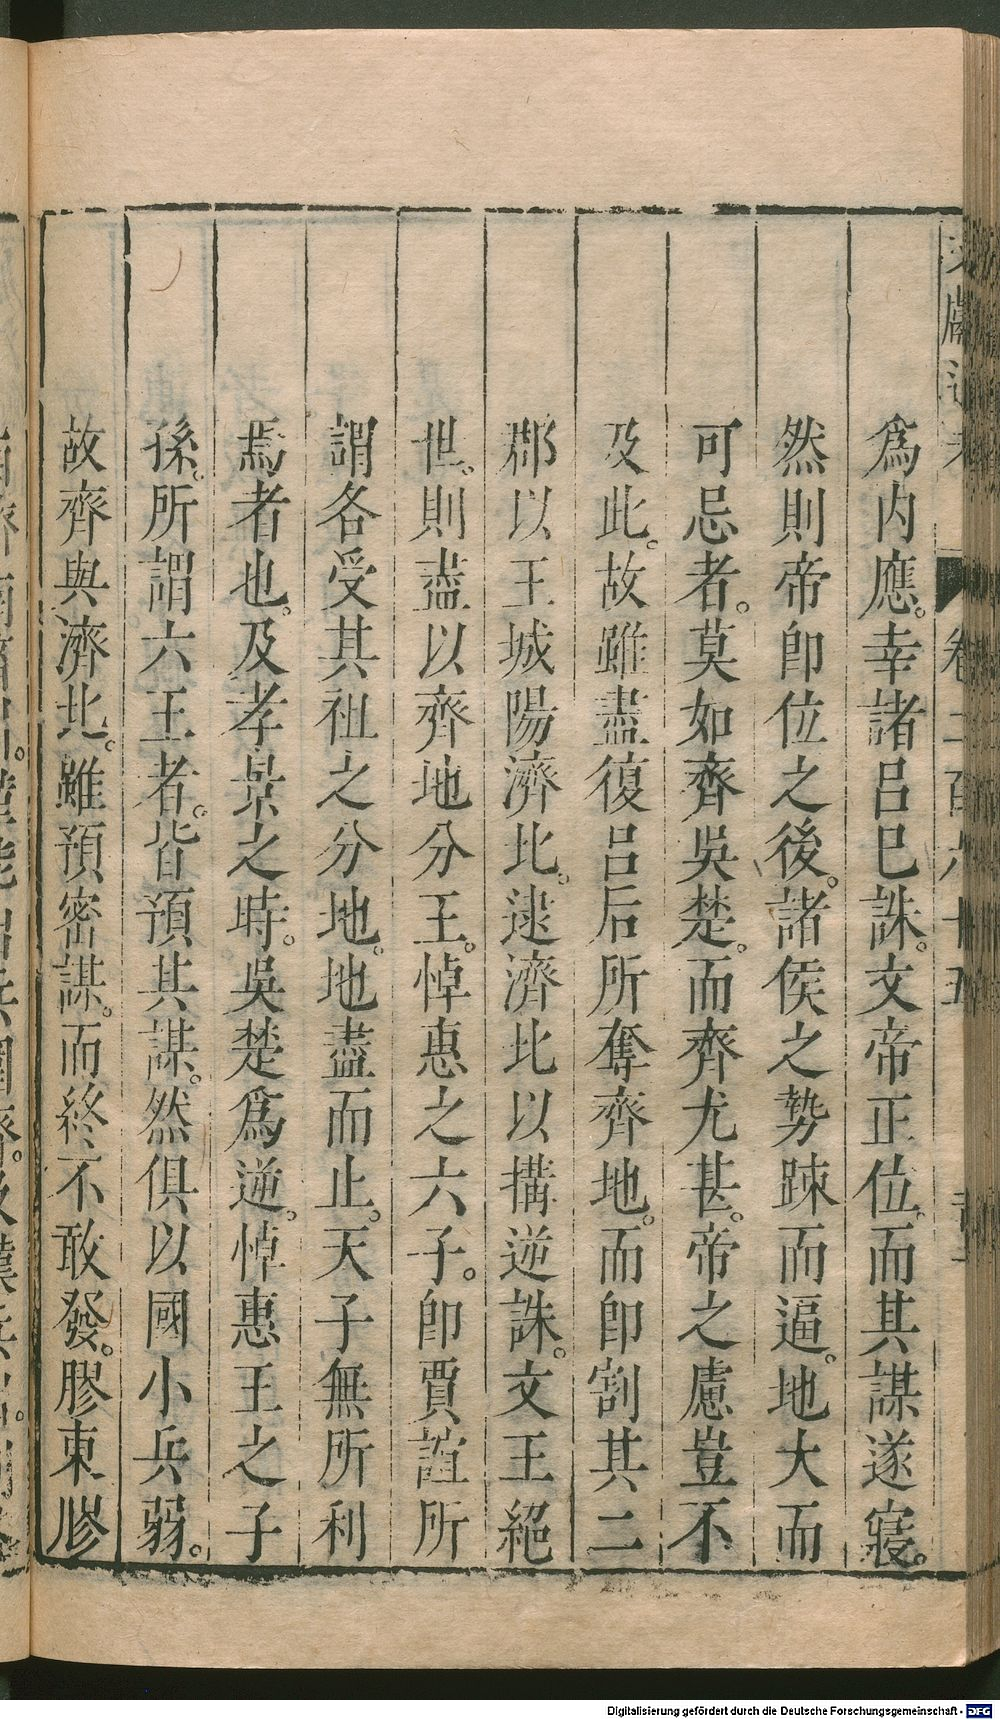 爲内應。幸諸呂巳誅。文帝正位。而其謀遂寢。
然則帝卽位之後。諸侯之勢踈而逼。地大而
可忌者。莫如齊吳楚。而齊尤甚。帝之慮豈不
及此。故雖盡復呂后所奪齊地。而卽割其二
郡以王城陽濟北。逮濟北以搆逆誅。文王絕
世。則盡以齊地分王。悼惠之六子。卽賈誼所
謂各受其祖之分地。地盡而止。天子無所利
焉者也。及孝景之時。吳楚爲逆。悼惠王之子
孫。所謂六王者。皆預其謀。然俱以國小兵弱。
故齊與濟北。雖預密謀。而終不敢發。膠東膠
Digitalisierung gefördert durch die Deutsche Forschungsgemeinschaft - DFG